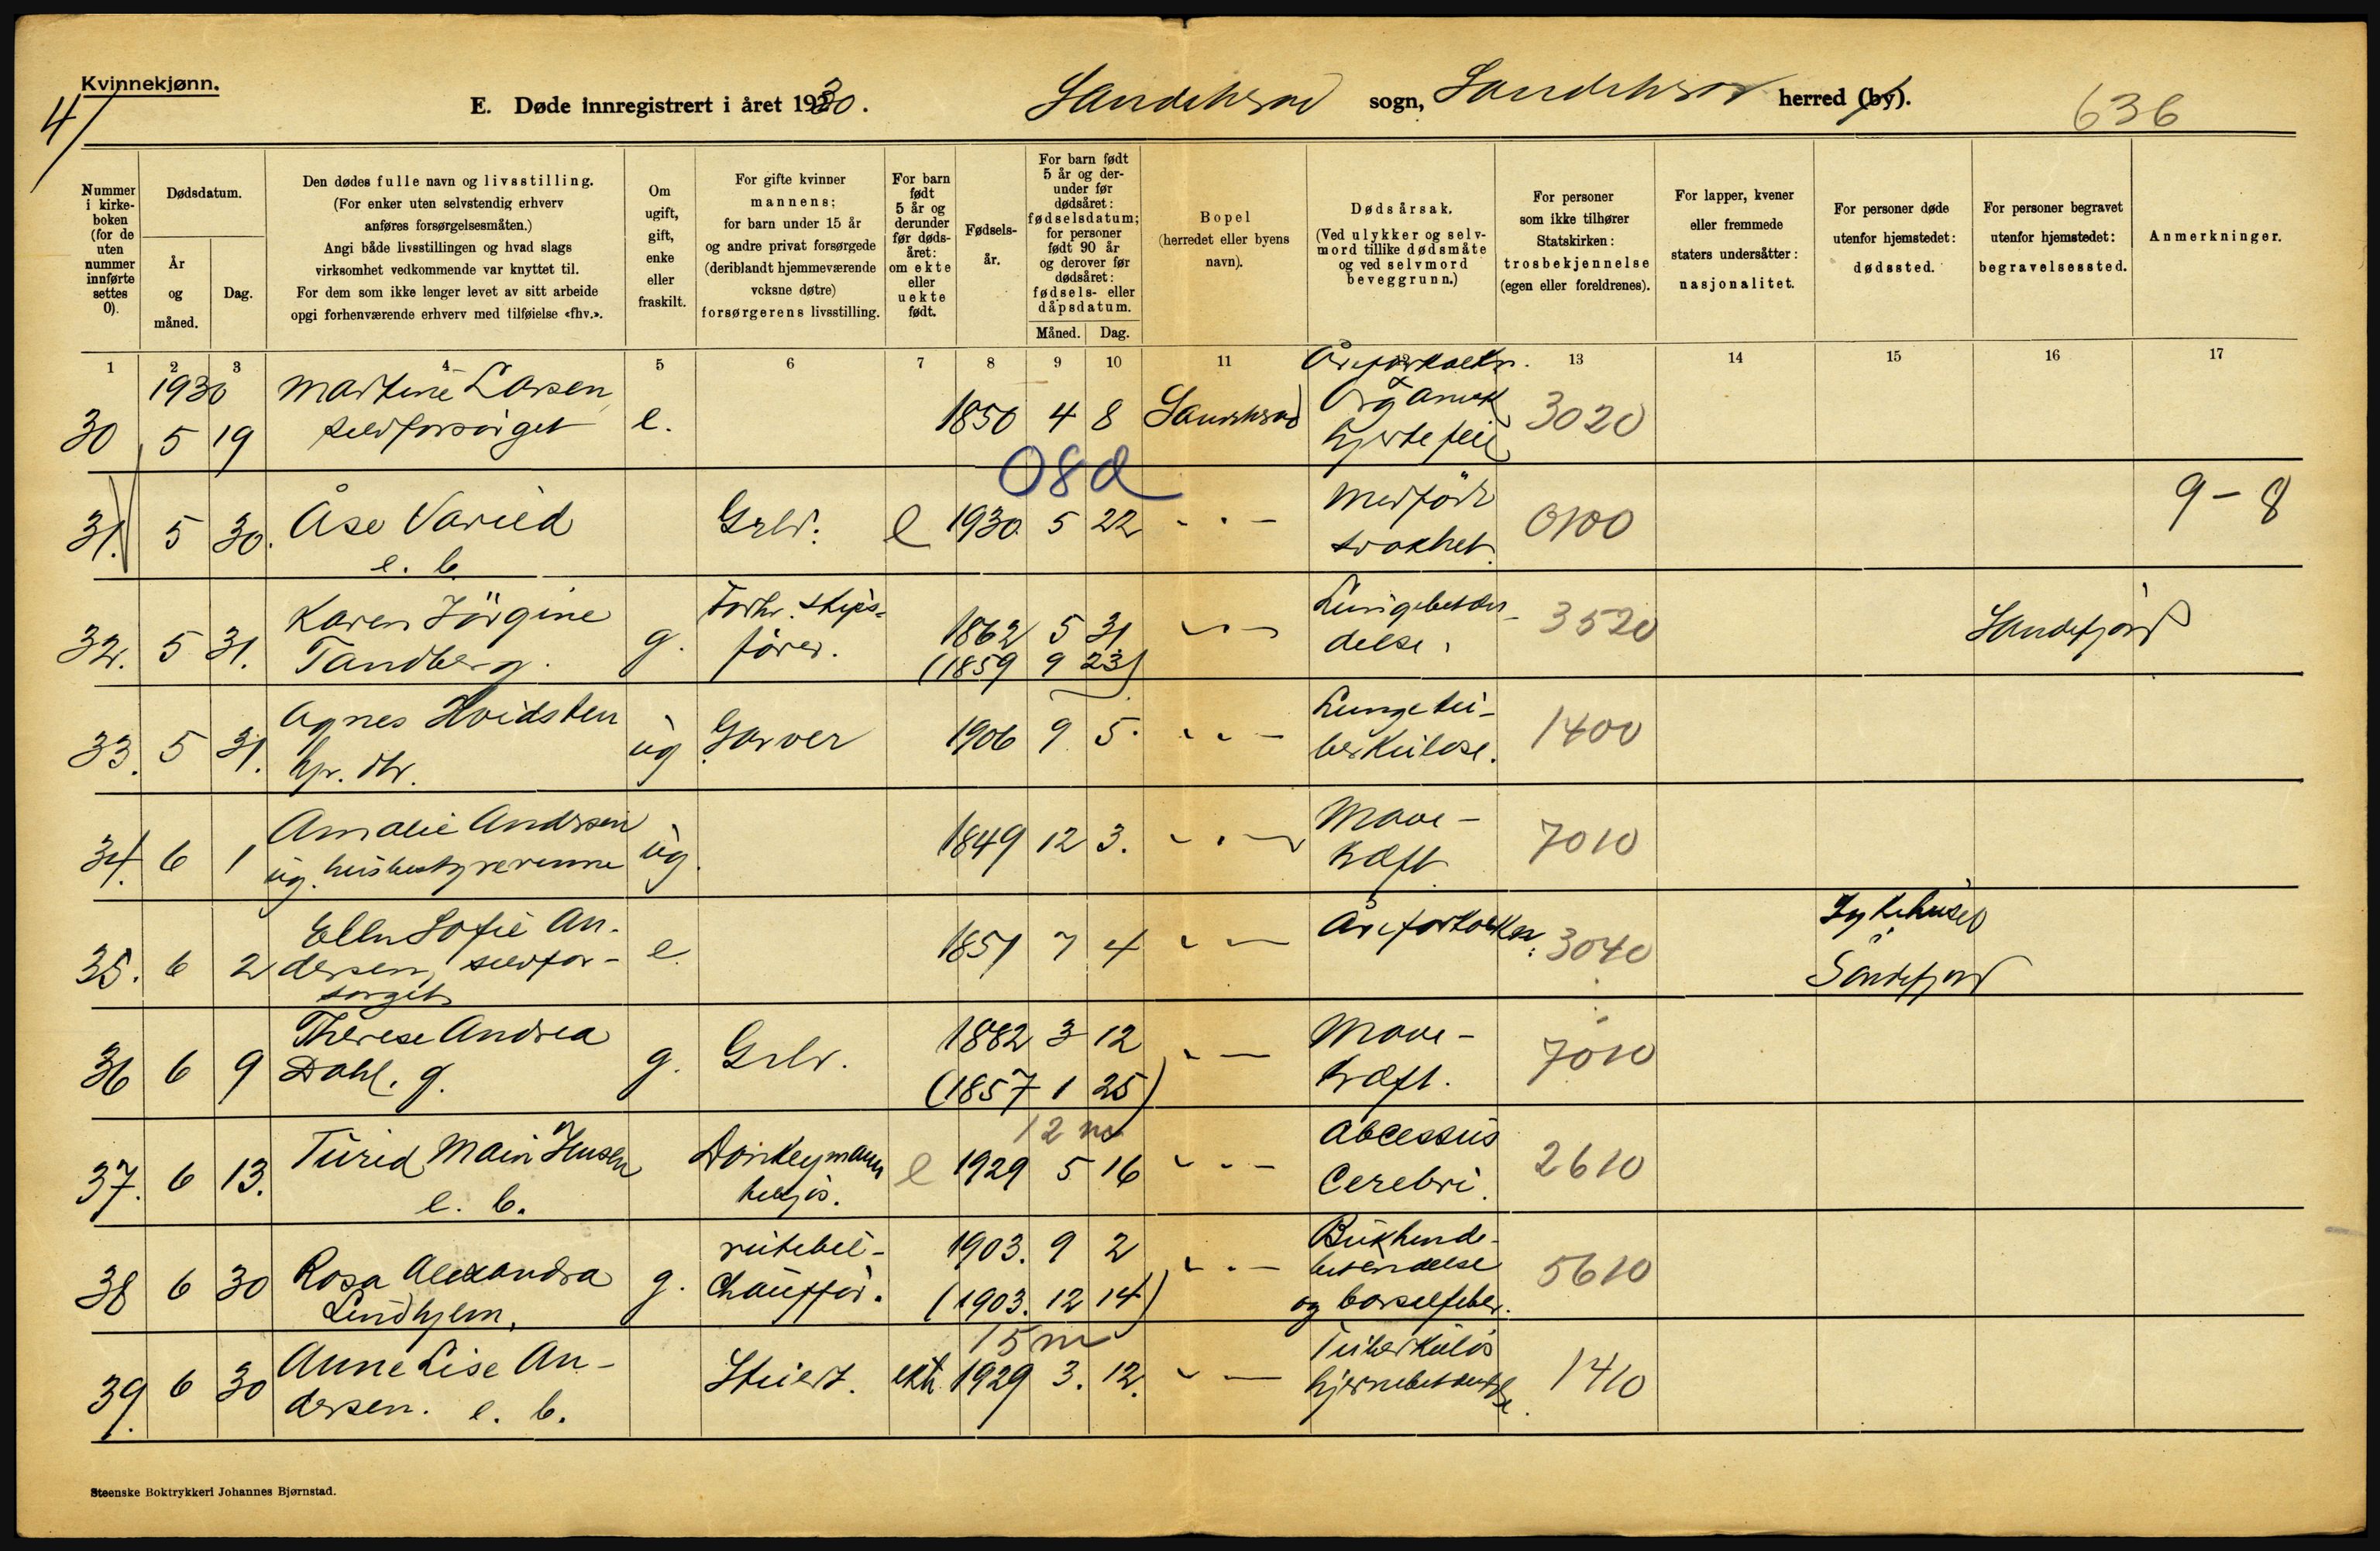 Kvinnekjønn.
4
E. Døde innregistrert i året 1930. Sandeherad sogn, Sandeherad herred (by).
636
Nummer i kirkeboken (for de uten nummer innførte settes 0).
Dødsdatum.
År og måned.
Dag.
Den dødes fulle navn og livsstilling.
(For enker uten selvstendig erhverv
anføres forsørgelsesmåten.)
Angi både livsstillingen og hvad slags
virksomhet vedkommende var knyttet til.
For dem som ikke lenger levet av sitt arbeide
opgi forhenværende erhverv med tilføielse «fhv.».
Om ugift, gift, enke eller fraskilt.
For gifte kvinner
mannens;
for barn under 15 år
og andre privat forsørgede
(deriblandt hjemmeværende
voksne døtre)
forsørgerens livsstilling.
For barn født 5 år og derunder før dødsåret: om ekte eller uekte født.
Fødselsår.
For barn født 5 år og derunder før dødsåret: fødselsdatum; for personer født 90 år og derover før dødsåret: fødsels- eller dåpsdatum.
Måned. Dag.
Bopel
(herredet eller byens
navn).
Dødsårsak.
(Ved ulykker og selv-
mord tillike dødsmåte
og ved selvmord
beveggrunn.)
For personer
som ikke tilhører
Statskirken:
trosbekjennelse
(egen eller foreldrenes).
For lapper, kvener
eller fremmede
staters undersåtter:
nasjonalitet.
For personer døde
utenfor hjemstedet:
dødssted.
For personer begravet
utenfor hjemstedet:
begravelsessted.
Anmerkninger.
1 2 3 4 5 6 7 8 9 10 11 13 14 15 16 17
1930 Martine Larsen Åreforkalkn.
30 5 19 selvforsørget e. 1850 4 8 Sandeherad Organisk hjertefeil 3020
08d
31. 5 30. Åse Varild Grbr. e 1930 5 22 - " - Medfødt svakhet 0100 9-8
e. b.
32. 5 31. Karen Jörgine Tandberg. g. Forhv. skipsfører. 1862 5 31 - " - Lungebetændelse. 3520 Sandefjord
(1859 9 23)
33. 5 31. Agnes Hvidsten ug. Garver 1906 9 5. - " - Lungetuberkulose. 1400
hj. dtr.
34. 6 1 Amalie Andersen ug. 1849 12 3. - " - Mavekræft 7010
ug. husbestyrerinne
35. 6 2 Ellen Sofie Andersen, selvforsørget e. 1851 7 4 - " - Åreforkalkn. 3040 Sykehuset Sandefjord
36 6 9 Therese Andrea Dahl. g. g. Grbr. 1882 3 12 - " - Mavekræft. 7010
(1857 1 25)
12 m
37. 6 13. Turid Mari Hansen Donkeymann e 1929 5 16 - " - Abcessus Cerebri. 2610
e. b.
38 6 30 Rosa Alexandra Lindhjem. g. rutebilchauffør. 1903. 9 2 - " - Bukhindebetendelse og barselfeber. 5610
(1903. 12 14)
15 m
39. 6 30 Anne Lise Andersen. e. b. Stuert. ekte 1929 3. 12. - " - Tuberkuløs hjernebetendelse. 1410
Steenske Boktrykkeri Johannes Bjørnstad.